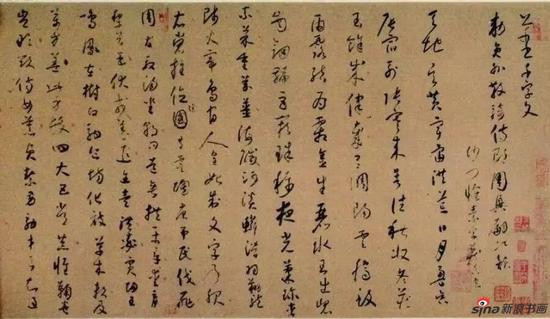 千字文
敕員外散騎侍郎周興嗣次韻
沙門懷素
天地玄黃宇宙洪荒日月盈昃
辰宿列張寒來暑往秋收冬藏
閏餘成歲律呂調陽雲騰致
雨露結為霜金生麗水玉生崑
岡劍號巨闕珠稱夜光菓珍李
柰菜重芥薑海鹹河淡鱗潛羽翔龍
師火帝鳥官人皇始制文字乃服
衣裳推位讓國有虞陶唐弔民伐罪
周發殷湯坐朝問道垂拱平章愛育
黎首臣伏戎羌遐邇壹體率賓歸王
鳴鳳在樹白駒食場化被草木賴及
萬方蓋此身髮四大五常恭惟鞠養
豈敢毀傷女慕貞絜男效才良知過
sina新浪书画